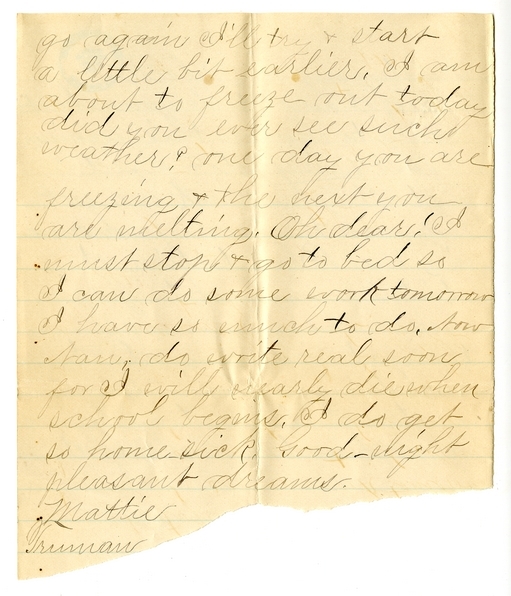 go again I'll try & start
a little bit earlier. I am
about to freeze out today
did you ever see such
weather? one day you are
freezing & the next you
are melting. Oh dear! I
must stop & go to bed so
I can do some work tomorrow
I have so much to do. Now
Nan, do write real soon
for I will nearly die when
school begins. I do get
so home-sick. Good-night
pleasant dreams.
Mattie
Truman